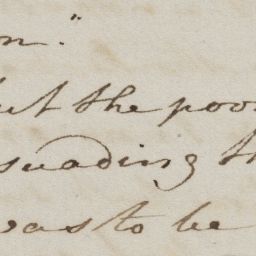 on."
but the poor
suading th
was to be